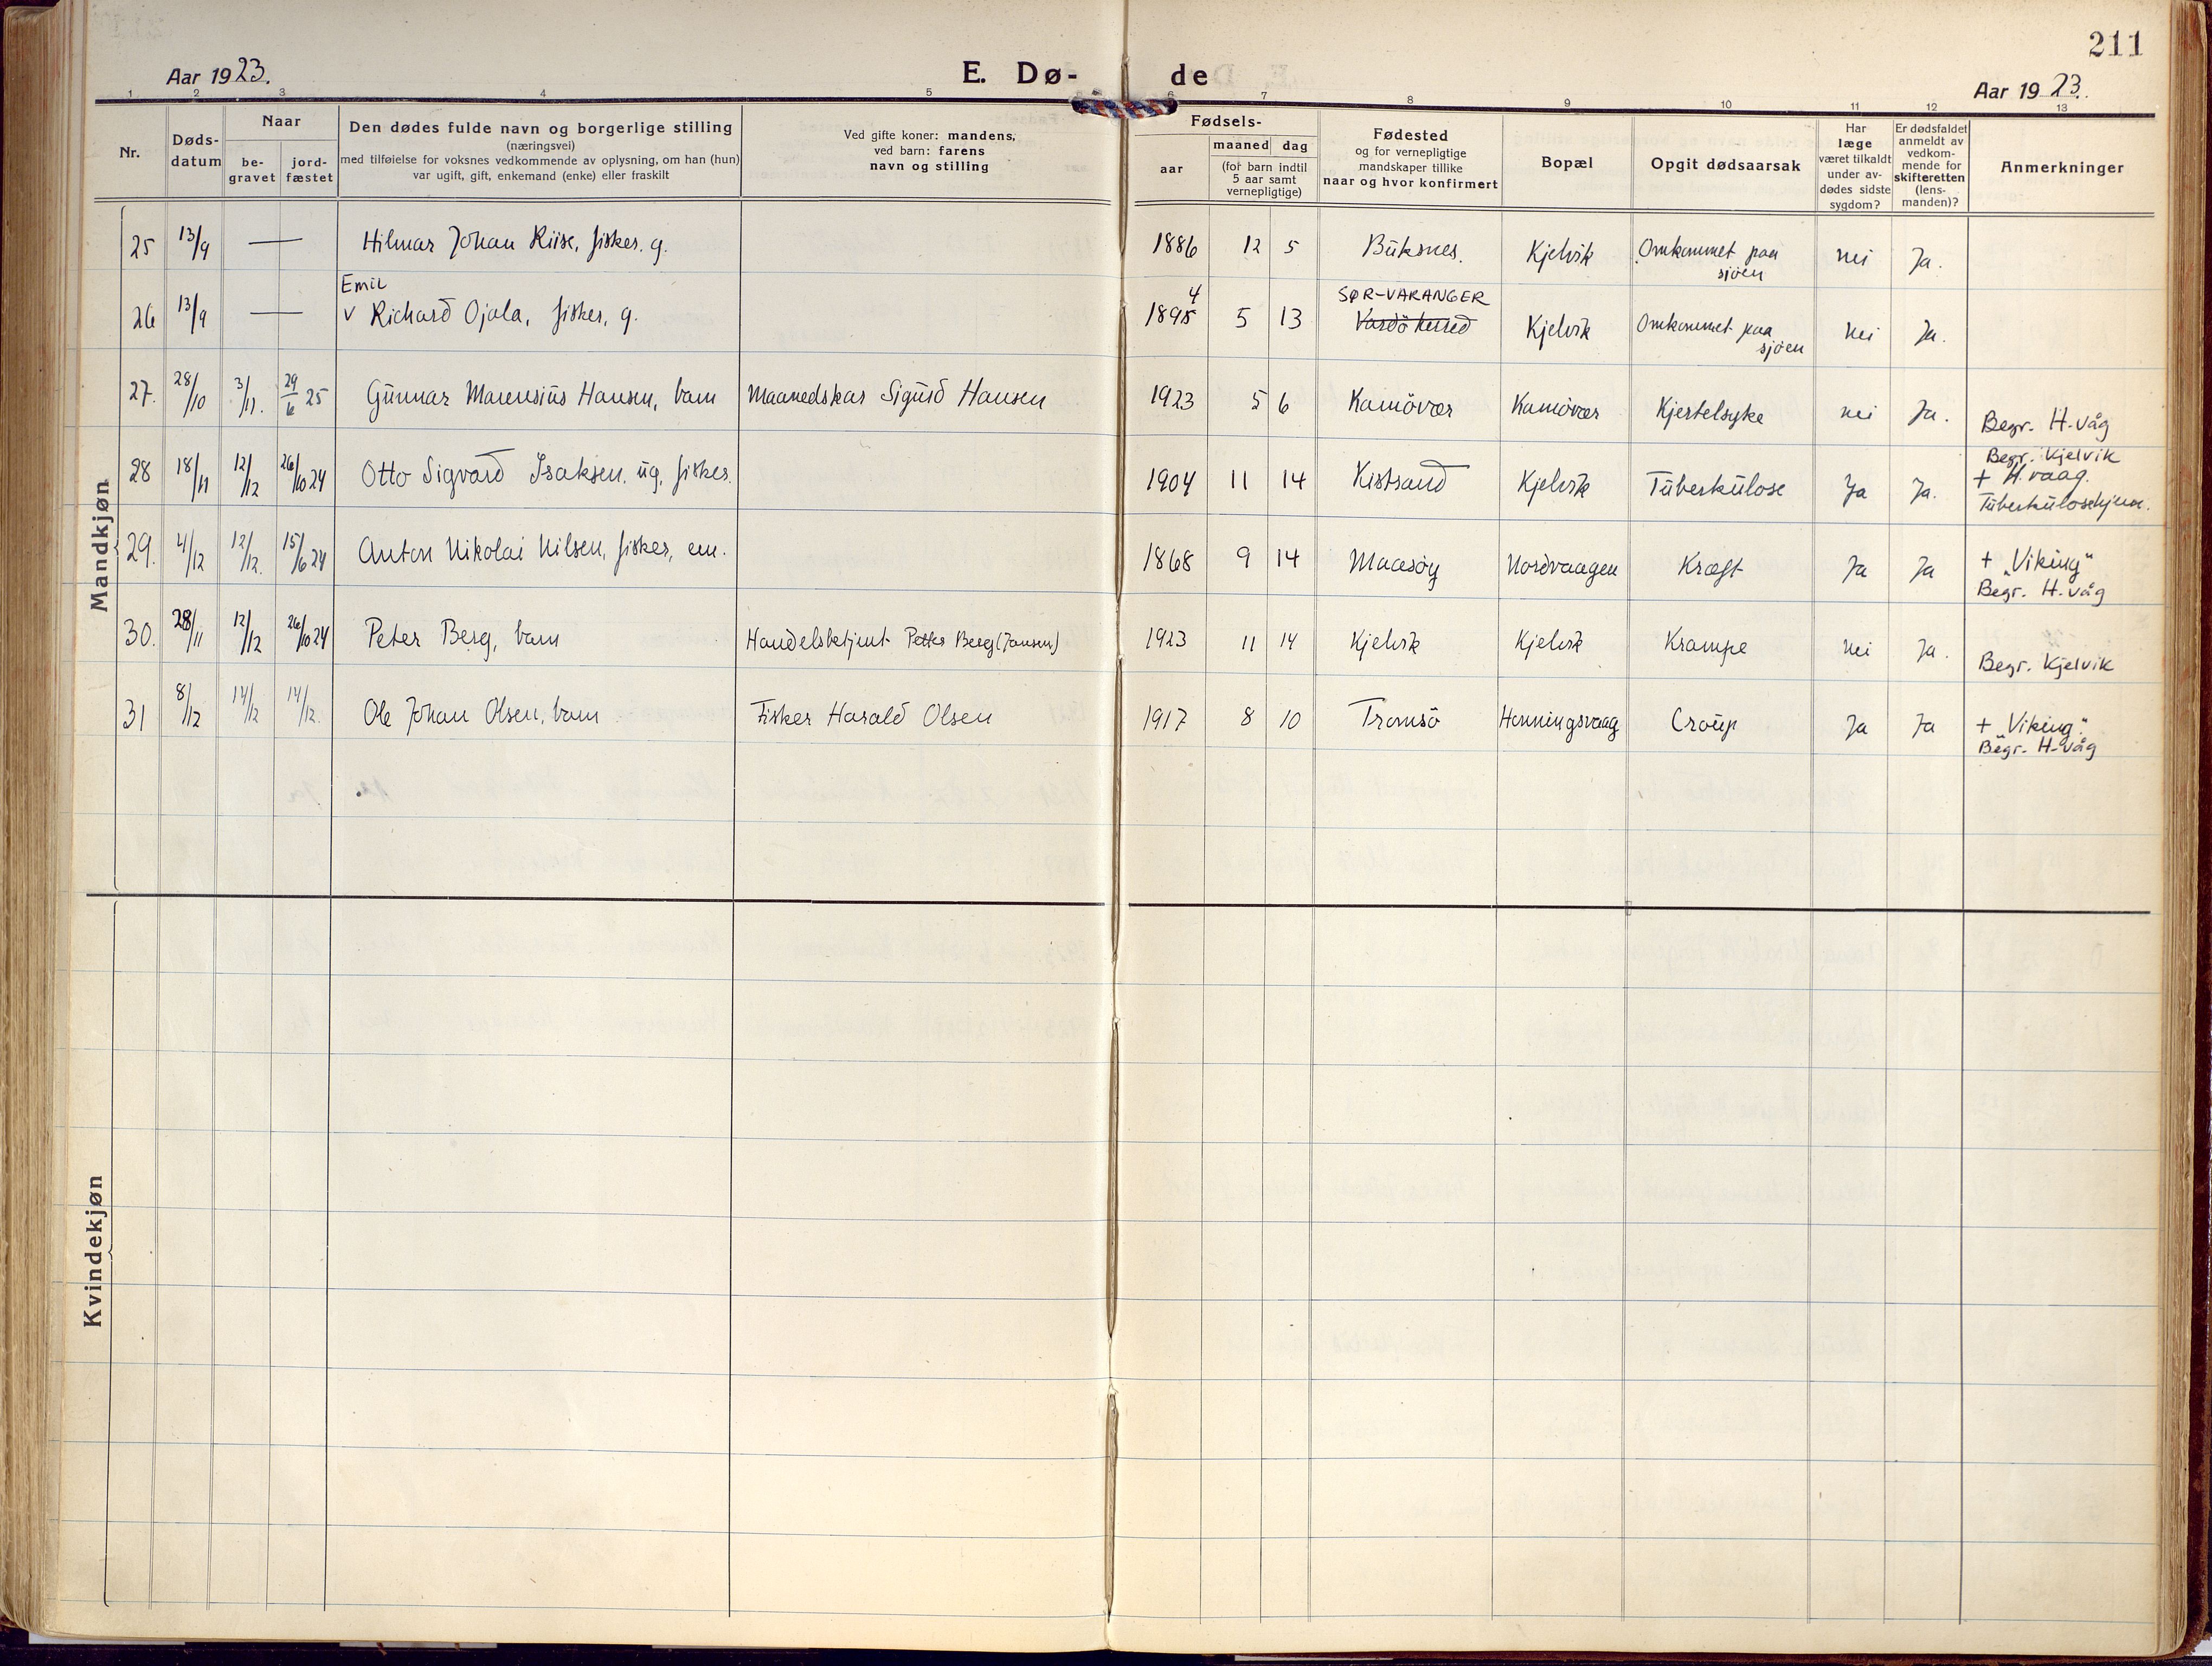 211
Aar 1923.
E. Dø-
de
Aar 1923.
1 2 3 4 5 6 7 8 9 10 11 12 13
Nr.
Døds-
datum
Naar
be-
gravet
jord-
fæstet
Den dødes fulde navn og borgerlige stilling
(næringsvei)
med tilføielse for voksnes vedkommende av oplysning, om han (hun)
var ugift, gift, enkemand (enke) eller fraskilt
Ved gifte koner: mandens,
ved barn: farens
navn og stilling
Fødsels-
aar
maaned dag
(for barn indtil
5 aar samt
vernepligtige)
Fødested
og for vernepligtige
mandskaper tillike
naar og hvor konfirmert
Bopæl
Opgit dødsaarsak
Har
læge
været tilkaldt
under av-
dødes sidste
sygdom?
Er dødsfaldet
anmeldt av
vedkom-
mende for
skifteretten
(lens-
manden)?
Anmerkninger
Mandkjøn
25 13/9 — Hilmar Johan Riise, fisker. g. 1886 12 5 Buksnes. Kjelvik Omkommet paa nei Ja.
sjøen
Emil
4 SØR-VARANGER
26 13/9 — v Richard Ojala, fisker, g. 1895 5 13 Vardö herred Kjelvik Omkommet paa nei Ja.
sjøen
27. 28/10 3/11. 29/6 25 Gunnar Marensius Hansen, barn Maanedskar Sigurd Hansen 1923 5 6 Kamövær Kamövær Kjertelsyke nei Ja. Begr. H-våg
28 18/11 12/12 26/10 24 Otto Sigvard Isaksen, ug, fisker. 1904 11 14 Kistrand Kjelvik Tuberkulose Ja Ja. Begr. Kjelvik
+ H.vaag.
Tuberkulosehjem.
29. 4/12 12/12. 15/6 24 Anton Nikolai Nilsen, fisker, em. 1868 9 14 Maasöy Nordvaagen Kræft Ja Ja + "Viking"
Begr. H-våg
30. 28/11 12/12 26/10 24 Peter Berg, barn Handelsbetjent Petter Berg (Jansen) 1923 11 14 Kjelvik Kjelvik Krampe nei Ja. Begr. Kjelvik
31 8/12 14/12 14/12. Ole Johan Olsen, barn Fisker Harald Olsen 1917 8 10 Tromsö Honningsvaag Croup Ja Ja + "Viking".
Begr. H-våg
Kvindekjøn